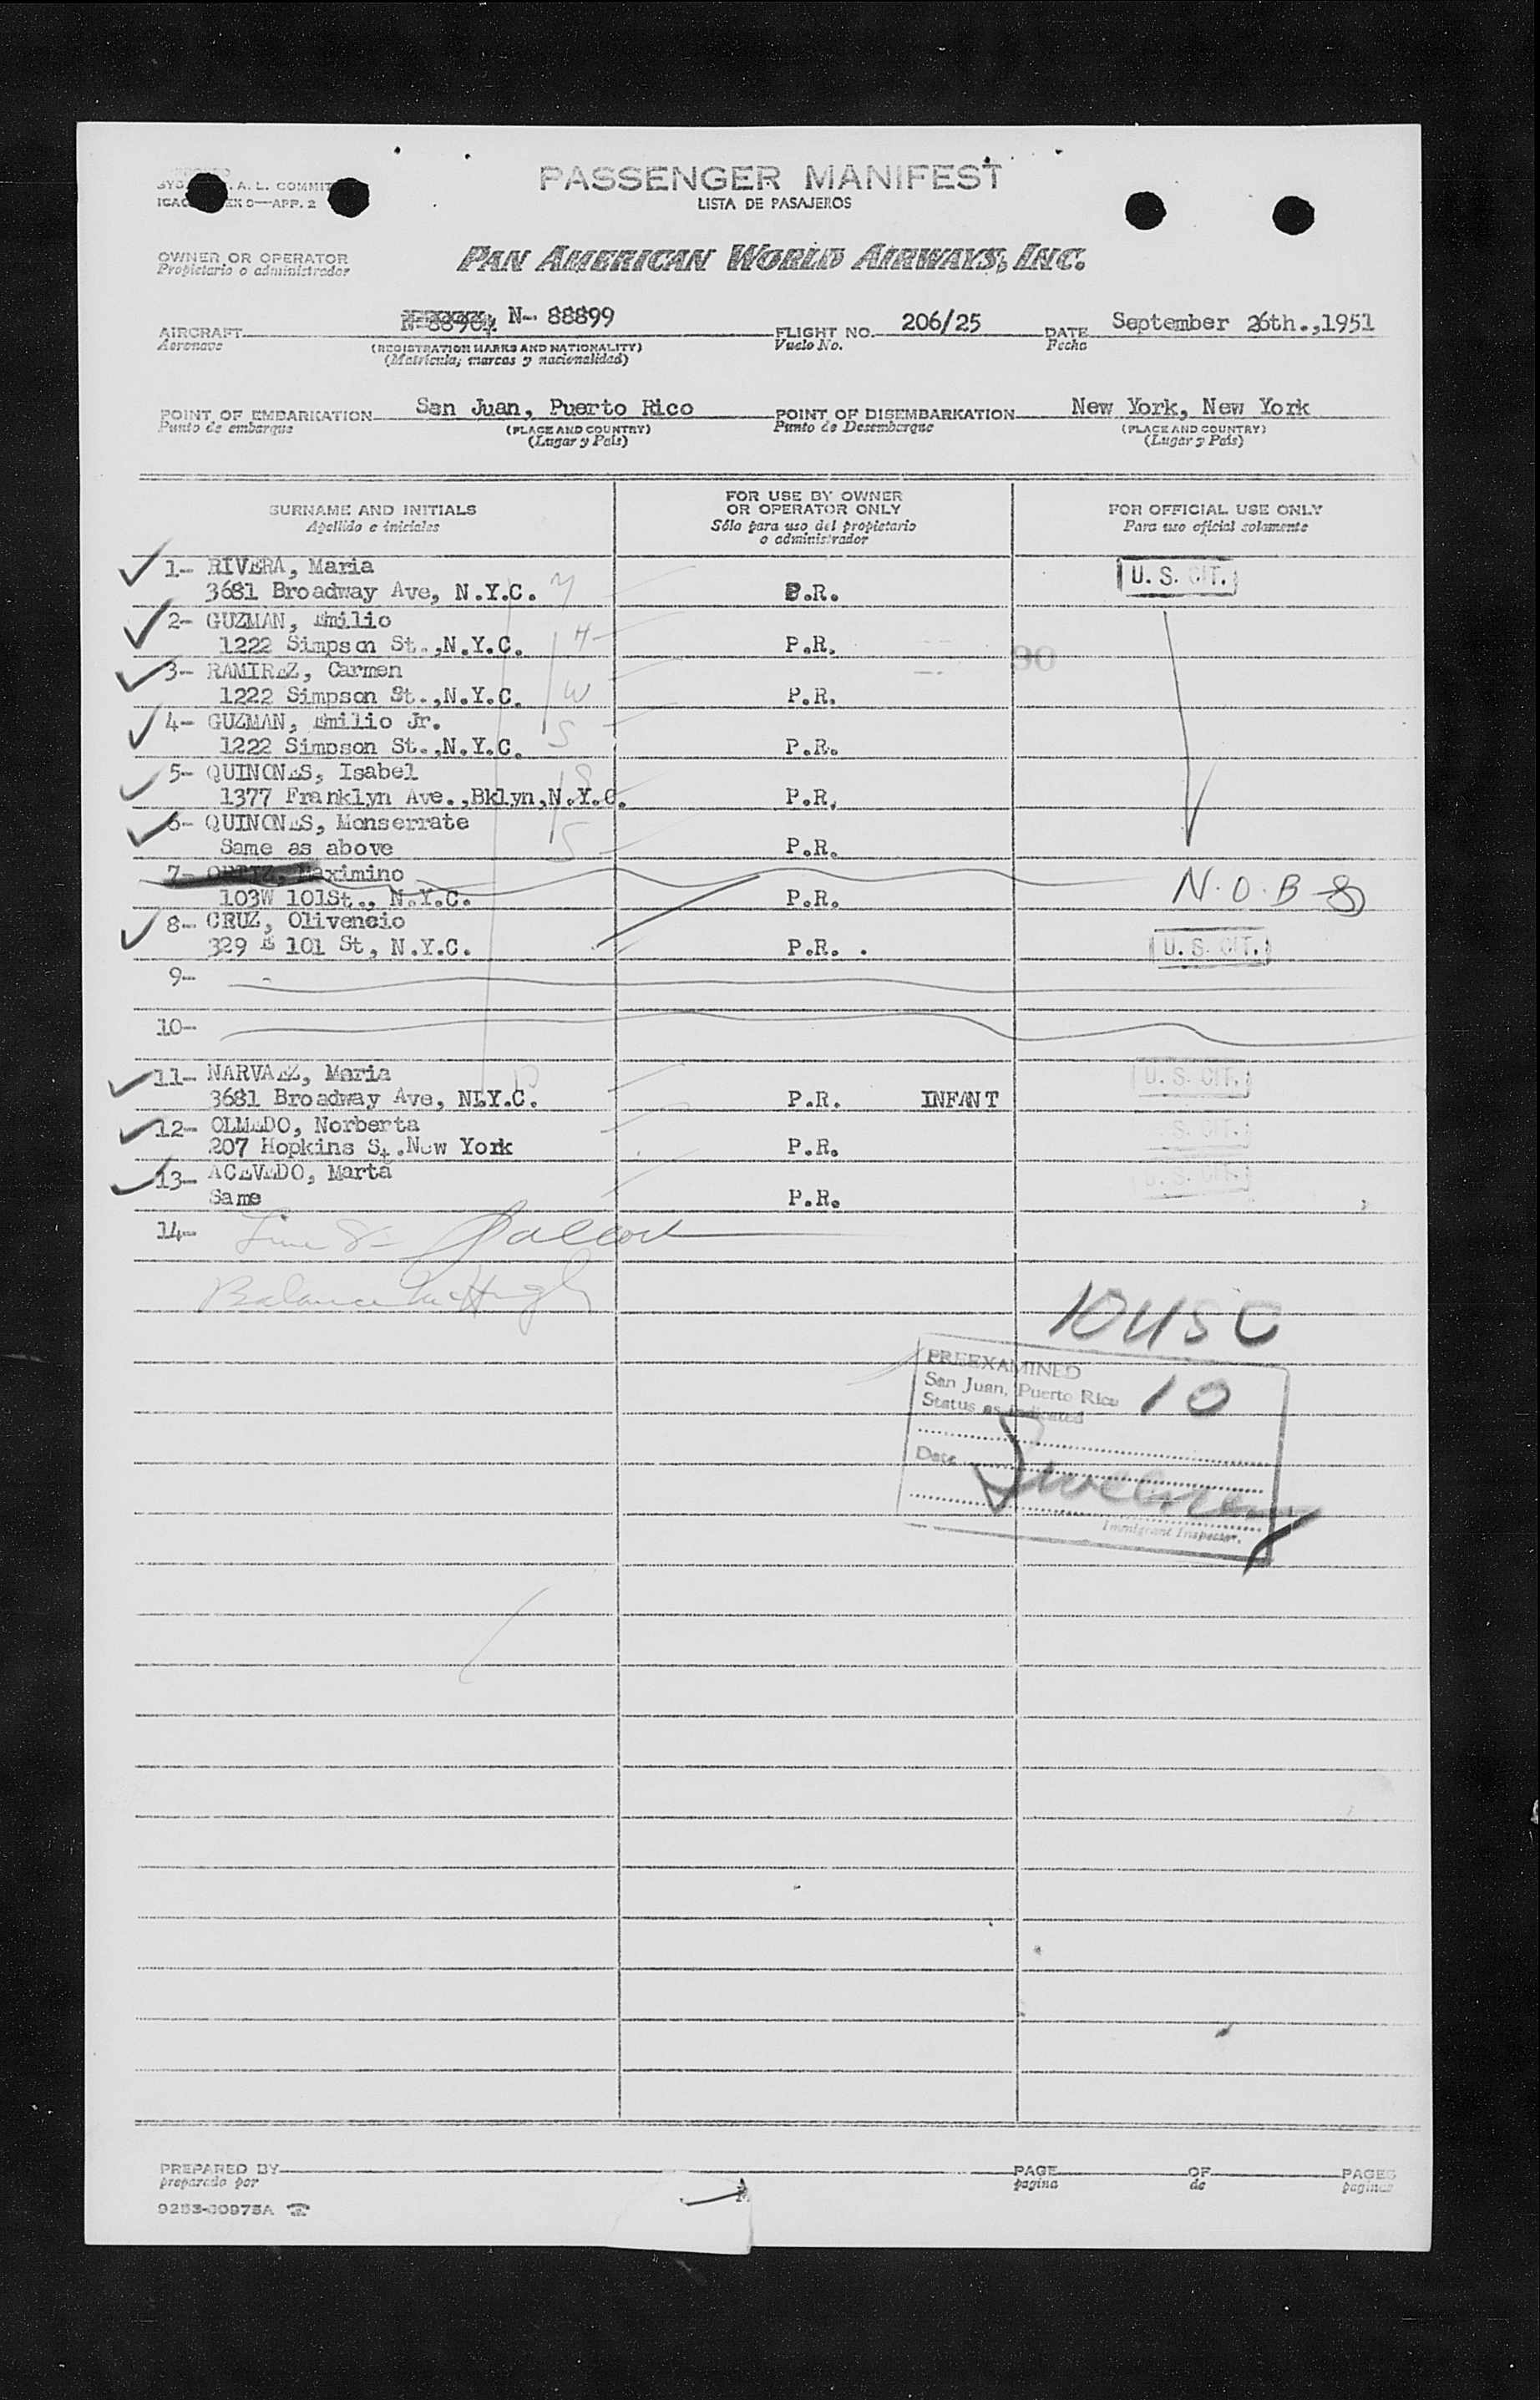 PASSENGER MANIFEST
LISTA DE PASAJEROS
A. L. COMMIT
APP. 2
OWNER OR OPERATOR
Propietario o administrador
PAN AMERICAN WORLD AIRWAYS, INC.
AIRCRAFT N- 88899 FLIGHT NO. 206/25 DATE September 26th.,1951
Aeronave (REGISTRATION MARKS AND NATIONALITY) Vuelo No. Fecha
(Matrícula, marcas y nacionalidad)
POINT OF EMBARKATION San Juan, Puerto Rico POINT OF DISEMBARKATION New York, New York
Punto de embarque (PLACE AND COUNTRY) Punto de Desembarque (PLACE AND COUNTRY)
(Lugar y País) (Lugar y País)
SURNAME AND INITIALS FOR USE BY OWNER OR OPERATOR ONLY FOR OFFICIAL USE ONLY
Apellido e iniciales Sólo para uso del propietario o administrador Para uso oficial solamente
1- RIVERA, Maria U. S. CIT.
3681 Broadway Ave, N.Y.C. P.R.
2- GUZMAN, Emilio
1222 Simpson St.,N.Y.C. H P.R.
3- RAMIREZ, Carmen
1222 Simpson St.,N.Y.C. W P.R.
4- GUZMAN, Emilio Jr.
1222 Simpson St.,N.Y.C. S P.R.
5- QUINONES, Isabel
1377 Franklyn Ave.,Bklyn,N.Y.C. S P.R.
6- QUINONES, Monserrate
Same as above S P.R.
7- ORTIZ, Maximino N.O.B
103W 101St., N.Y.C. P.R.
8- CRUZ, Olivencio
329 E 101 St, N.Y.C. P.R. . U. S. CIT.
9-
10-
11- NARVAEZ, Maria U. S. CIT.
3681 Broadway Ave, N.Y.C. P.R. INFANT
12- OLMEDO, Norberta U. S. CIT.
207 Hopkins St.New York P.R.
13- ACEVEDO, Marta U. S. CIT.
Same P.R.
14-
Balance
10 USC
PREEXAMINED
San Juan, Puerto Rico 10
Status as indicated
Date
Immigrant Inspector.
PREPARED BY PAGE OF PAGES
preparado por página de páginas
9253-60975A